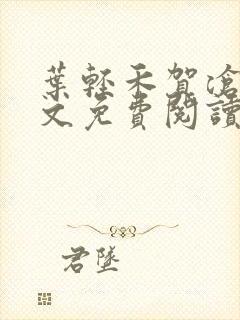 葉輕禾賀滄
文免費閱讀
君墜